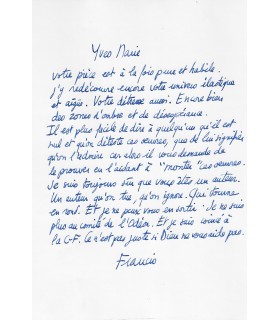 Yves Marie
votre pièce est à la fois pure et habile.
J'y redécouvre encore votre univers élastique
et aigüe. Votre détresse aussi. Encore bien
des zones d'ombre et de désespérance.
Il est plus facile de dire à quelqu'un qu'il est
nul et qu'on déteste ces œuvres, que de lui signifier
qu'on l'admire car alors il vous demande de
le prouver en l'aidant à "montrer" ces œuvres.
Je suis toujours sûr que vous êtes un auteur.
Un auteur qu'on tue, qu'on ignore. Qui tourne
en rond. Et je ne peux vous en sortir. Je ne suis
plus au comité de l'Odéon. Et je suis coincé à
la C-F. Ce n'est pas juste si Dieu ne vous aide pas.
Francis